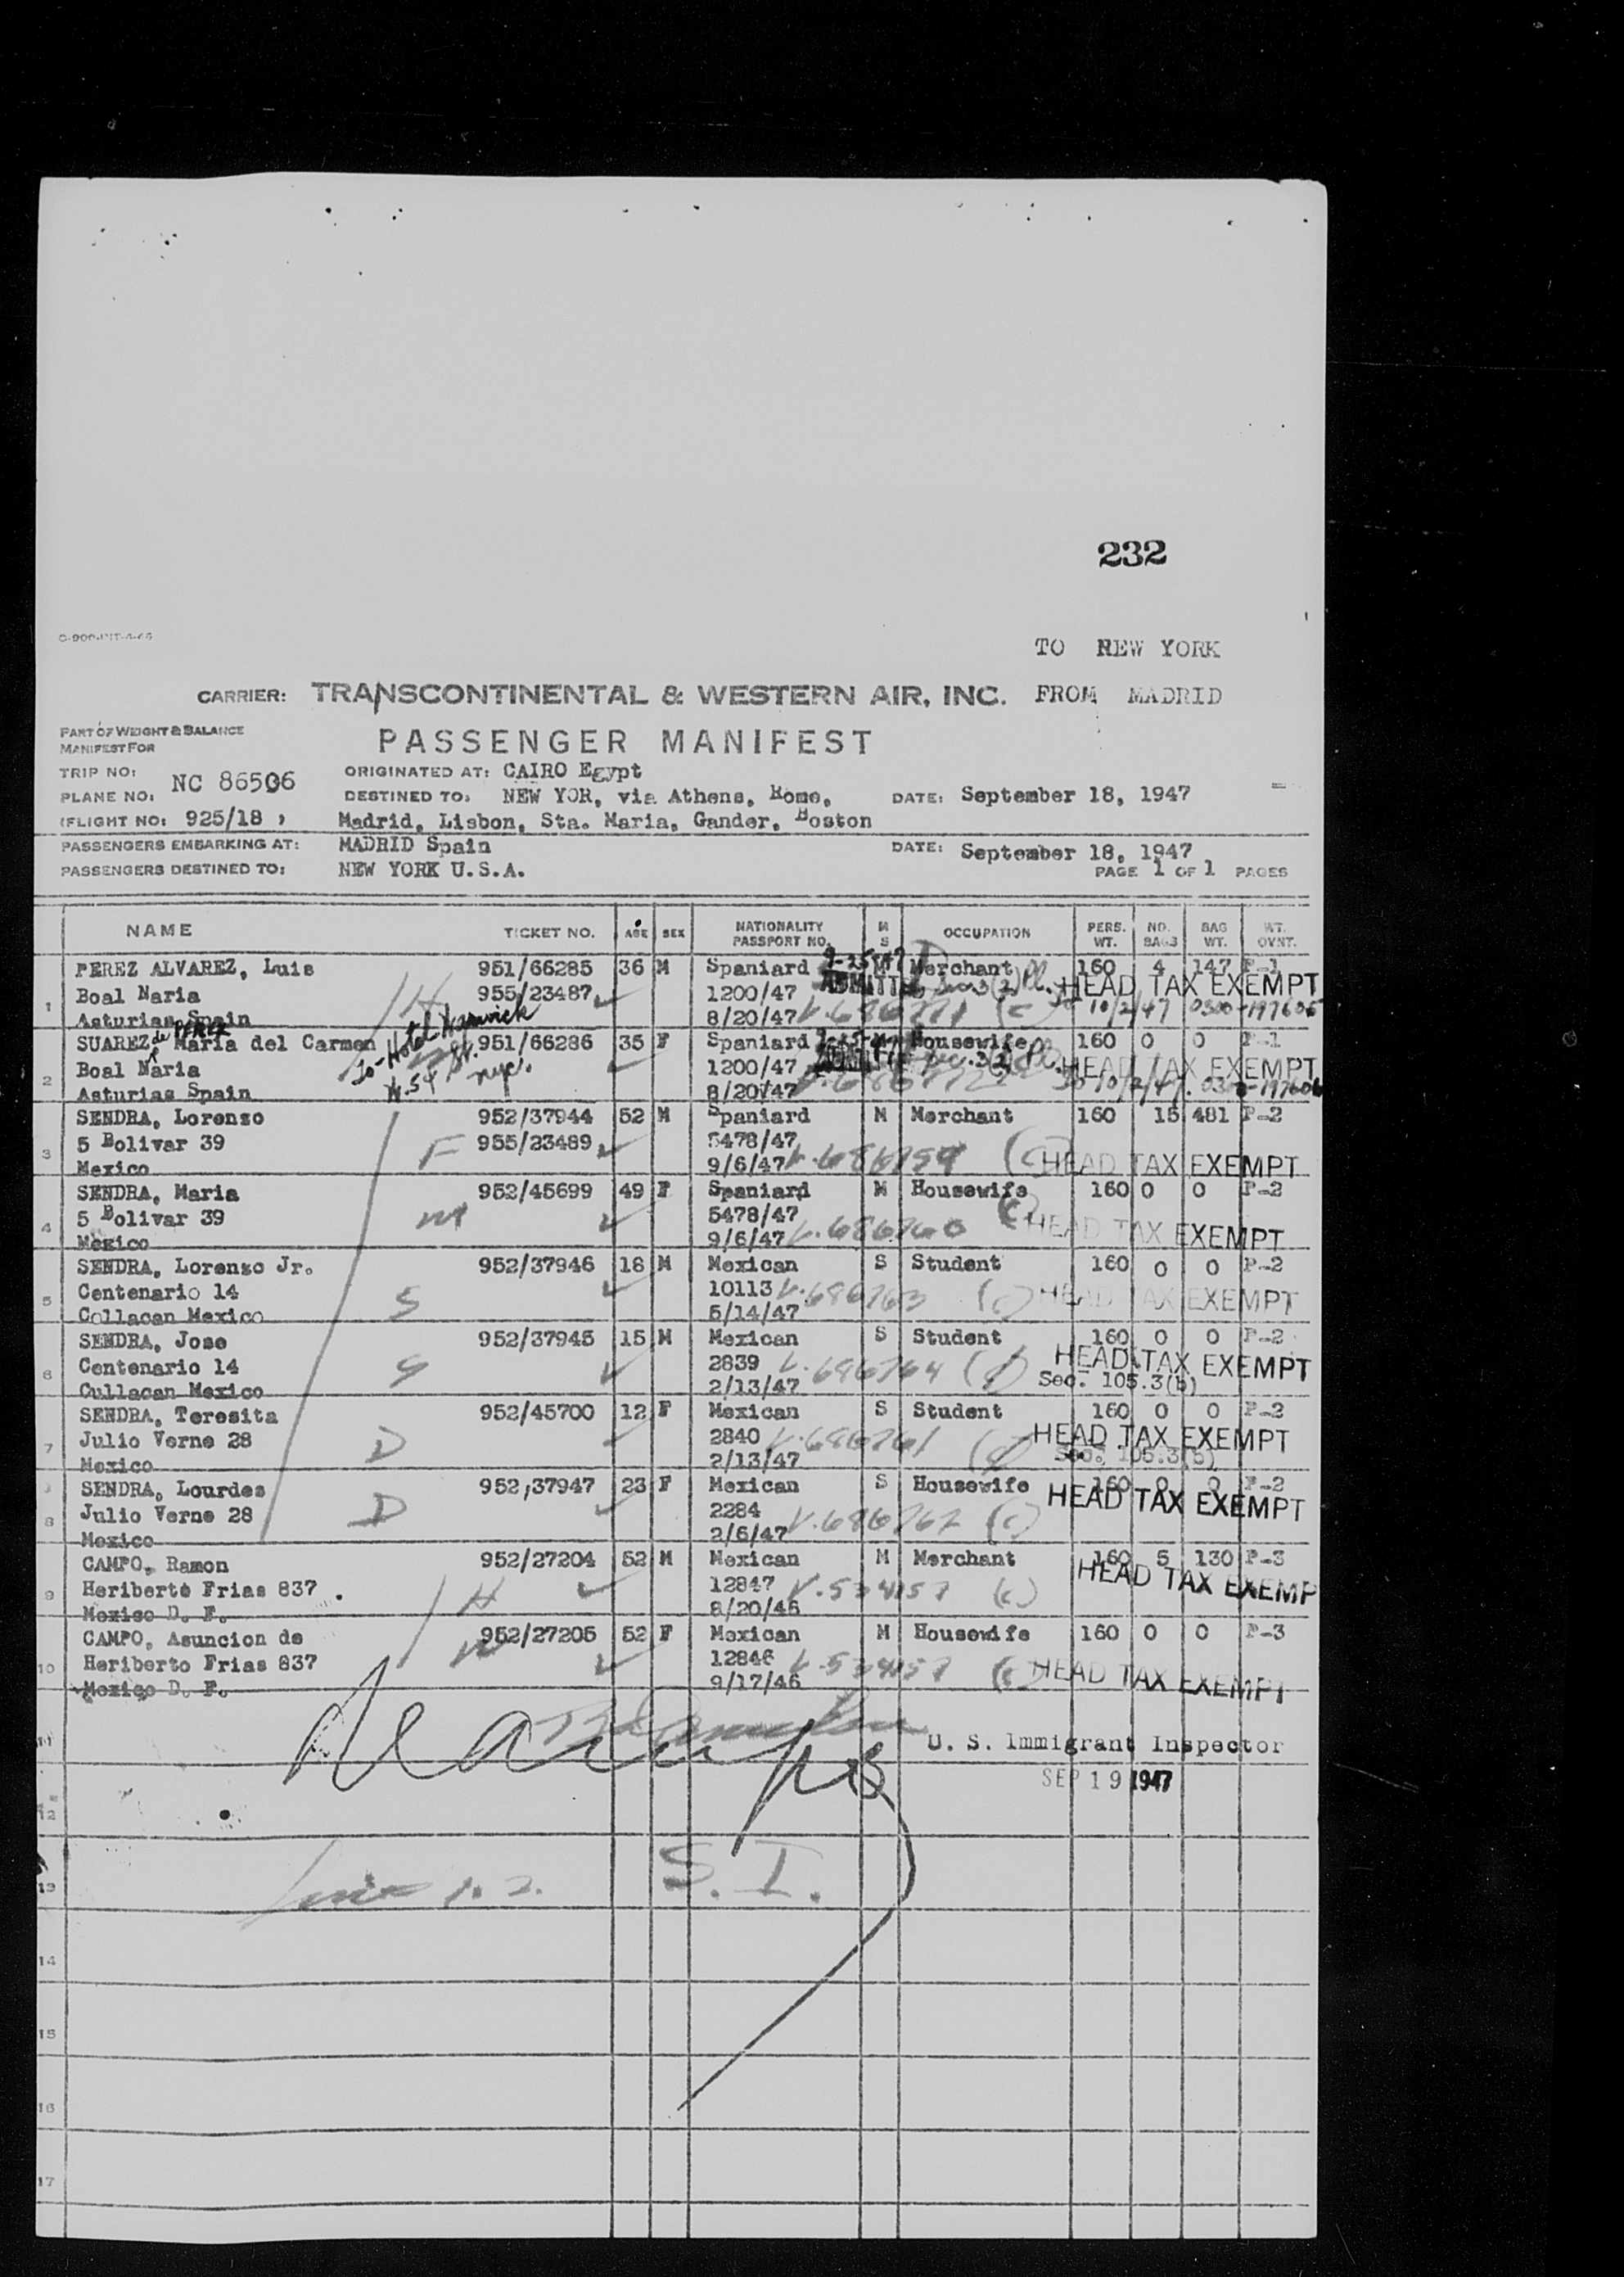 232
TO NEW YORK
CARRIER: TRANSCONTINENTAL & WESTERN AIR, INC. FROM MADRID
PART OF WEIGHT & BALANCE
MANIFEST FOR
PASSENGER MANIFEST
TRIP NO:
NC 86506
ORIGINATED AT: CAIRO Egypt
PLANE NO:
DESTINED TO: NEW YOR, via Athens, Rome,
DATE: September 18, 1947
(FLIGHT NO: 925/18 )
Madrid, Lisbon, Sta. Maria, Gander, Boston
PASSENGERS EMBARKING AT: MADRID Spain
DATE: September 18, 1947
PASSENGERS DESTINED TO: NEW YORK U.S.A.
PAGE 1 OF 1 PAGES
NAME TICKET NO. AGE SEX NATIONALITY PASSPORT NO. M S OCCUPATION PERS. WT. NO. BAGS BAG WT. WT. OVNT.
PEREZ ALVAREZ, Luis 951/66285 36 M Spaniard 9-25-47 M Merchant 160 4 147 P-1
1 Boal Naria 955/23487 1200/47 ADMITTED Sec. 3(2) HEAD TAX EXEMPT
Asturias Spain 8/20/47 V.686771 (c) to 10/2/47 0300-197605
SUAREZ de PEREZ Maria del Carmen 951/66286 35 F Spaniard M Housewife 160 0 0 P-1
To-Hotel Warwick
W. 54 St. nyc.
2 Boal Naria 1200/47 HEAD TAX EXEMPT
Asturias Spain 8/20/47 to 10/2/47. 0300-197606
SENDRA, Lorenzo 952/37944 52 M Spaniard M Merchant 160 15 481 P-2
3 5 Bolivar 39 F 955/23489 5478/47
Mexico 9/6/47 V.686759 (c) HEAD TAX EXEMPT
SENDRA, Maria 952/45699 49 F Spaniard M Housewife 160 0 0 P-2
4 5 Bolivar 39 M 5478/47 (c) HEAD TAX EXEMPT
Mexico 9/6/47 V.686760
SENDRA, Lorenzo Jr. 952/37946 18 M Mexican S Student 160 0 0 P-2
5 Centenario 14 S 10113 V.686763 (c) HEAD TAX EXEMPT
Collacan Mexico 5/14/47
SENDRA, Jose 952/37945 15 M Mexican S Student 160 0 0 P-2
6 Centenario 14 S 2839 V.686764 HEAD TAX EXEMPT
Cullacan Mexico 2/13/47 Sec. 105.3(b)
SENDRA, Teresita 952/45700 12 F Mexican S Student 160 0 0 P-2
7 Julio Verne 28 D 2840 V.686761 HEAD TAX EXEMPT
Mexico 2/13/47 Sec. 105.3(b)
SENDRA, Lourdes 952,37947 23 F Mexican S Housewife 160 0 0 P-2
8 Julio Verne 28 D 2284 HEAD TAX EXEMPT
Mexico 2/6/47 V.686762 (c)
CAMPO, Ramon 952/27204 52 M Mexican M Merchant 160 5 130 P-3
9 Heriberto Frias 837 . H 12847 V.534157 (c) HEAD TAX EXEMP
Mexico D. F. 8/20/46
CAMPO, Asuncion de 952/27205 52 F Mexican M Housewife 160 0 0 P-3
10 Heriberto Frias 837 W 12846 V.534157 (c) HEAD TAX EXEMPT
Mexico D. F. 9/17/46
11 U. S. Immigrant Inspector
SEP 19 1947
12
13 1. 2. S. I.
14
15
16
17